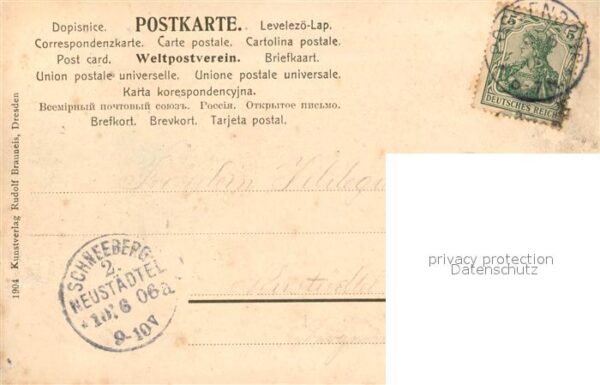 Dopisnice. POSTKARTE. Levelező-Lap.
Correspondenzkarte. Carte postale. Cartolina postale.
Post card. Weltpostverein. Briefkaart.
Union postale universelle. Unione postale universale.
Karta korespondencyjna.
Всемірный почтовый союзъ. Россія. Открытое письмо.
Brefkort. Brevkort. Tarjeta postal.
5 5
DEUTSCHES REICH
Fräulein
1904 Kunstverlag Rudolf Brauneis, Dresden
SCHNEEBERG
2.
NEUSTÄDTEL
06
9-10V
privacy protection
Datenschutz